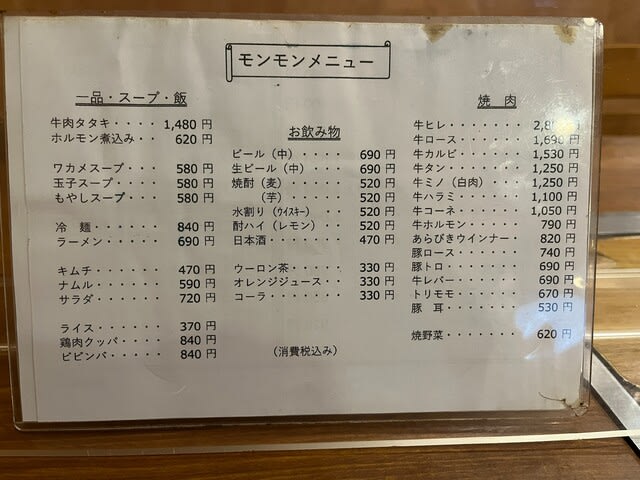 モンモンメニュー
一品・スープ・飯
牛肉タタキ・・・・ 1,480 円
ホルモン煮込み・・ 620 円
ワカメスープ・・・ 580 円
玉子スープ・・・・ 580 円
もやしスープ・・・ 580 円
冷 麺・・・・・・ 840 円
ラーメン・・・・・ 690 円
キムチ・・・・・・ 470 円
ナムル・・・・・・ 590 円
サラダ・・・・・・ 720 円
ライス・・・・・・ 370 円
鶏肉クッパ・・・・ 840 円
ビビンバ・・・・・ 840 円
お飲み物
ビール（中）・・・・ 690 円
生ビール（中）・・・ 690 円
焼酎（麦）・・・・・ 520 円
（芋）・・・・・ 520 円
水割り（ｳｲｽｷｰ）・・ 520 円
酎ハイ（レモン）・・ 520 円
日本酒・・・・・・・ 470 円
ウーロン茶・・・・・ 330 円
オレンジジュース・・ 330 円
コーラ・・・・・・・ 330 円
（消費税込み）
焼 肉
牛ヒレ・・・・・・・ 円
牛ロース・・・・・・ 1,690 円
牛カルビ・・・・・・ 1,530 円
牛タン・・・・・・・ 1,250 円
牛ミノ（白肉）・・・ 1,250 円
牛ハラミ・・・・・・ 1,100 円
牛コーネ・・・・・・ 1,050 円
牛ホルモン・・・・・ 790 円
あらびきウインナー・ 820 円
豚ロース・・・・・・ 740 円
豚トロ・・・・・・・ 690 円
牛レバー・・・・・・ 690 円
トリモモ・・・・・・ 670 円
豚 耳・・・・・・・ 530 円
焼野菜・・・・・・・ 620 円